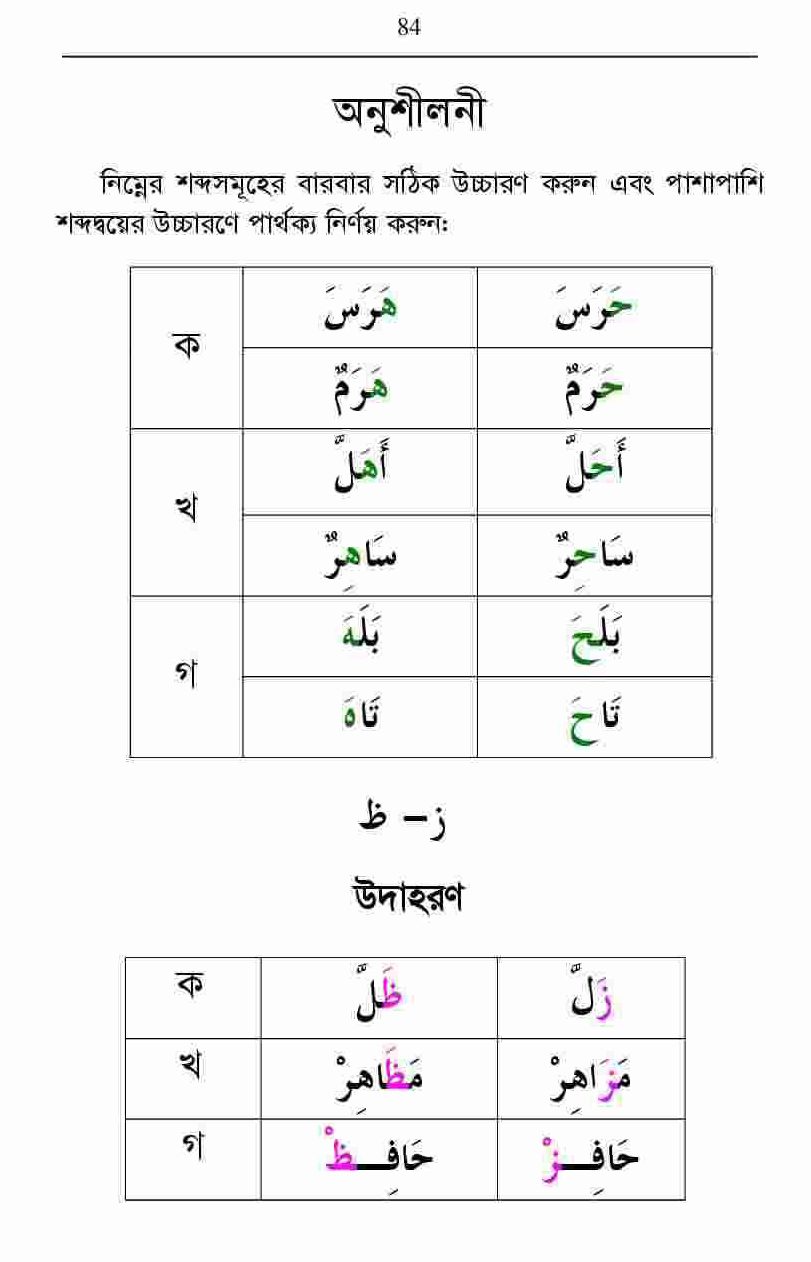 84
অনুশীলনী
নিম্নের শব্দসমূহের বারবার সঠিক উচ্চারণ করুন এবং পাশাপাশি
শব্দদ্বয়ের উচ্চারণে পার্থক্য নির্ণয় করুন:
ক هَرَسَ حَرَسَ
هَرَمٌ حَرَمٌ
খ أَهَلَّ أَحَلَّ
سَاهِرٌ سَاحِرٌ
গ بَلَهَ بَلَحَ
تَاهَ تَاحَ
ز – ظ
উদাহরণ
ক ظَلَّ زَلَّ
খ مَظَاهِرْ مَزَاهِرْ
গ حَافِـــظْ حَافِـــزْ